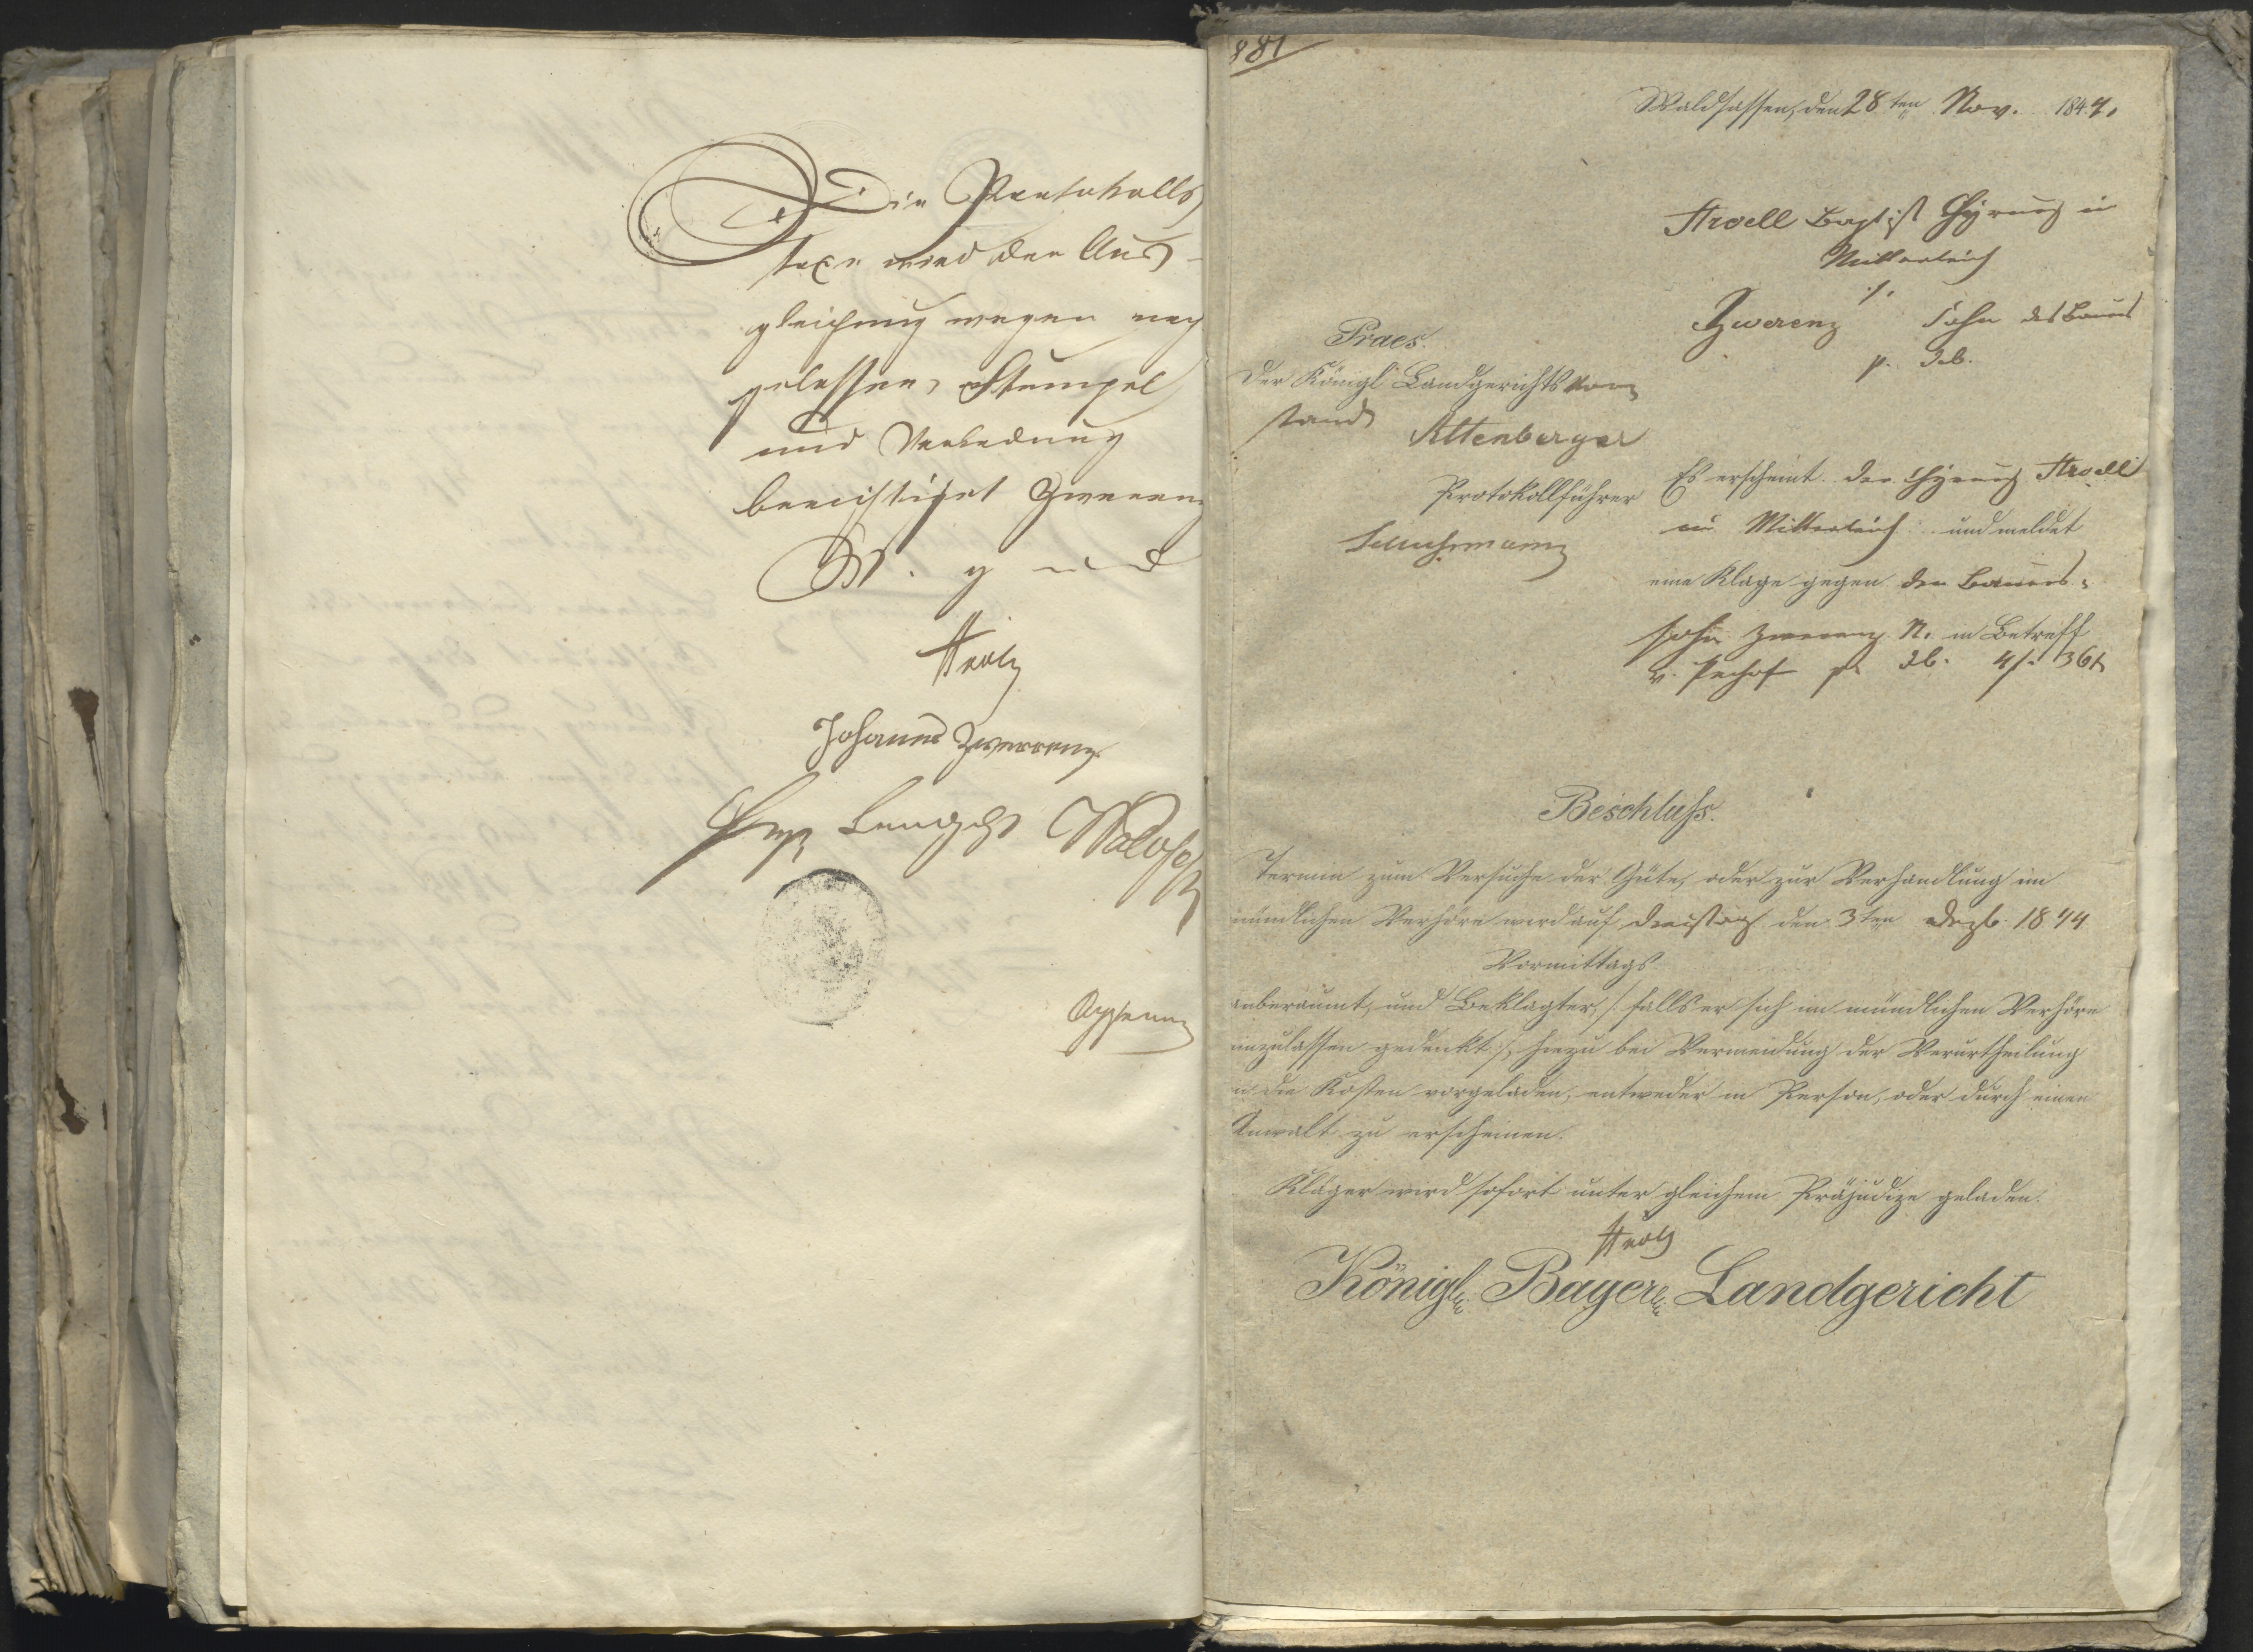 Die Protokolls
taxe wird der Aus-
gleichung wegen nach
gelassen, Stempel
und Verladung
berichtiget Zwerenz
V. g u
Johannes Zwerrenz
881
Waldsassen, den 28ten Nov. 1844.
Stroell Baptist Chyrurg in
Mitterteich
./.
Zwerenz Sohn des Bauers
p. deb.
Praes.
Der Königl Landgerichts Vor
stand
Altenberger
Protokollführer
Schuhmann
Es erscheint der Chyrurg Stroell
in Mitterteich und meldet
eine Klage gegen den Bauers-
sohn Zwerenz N. in Betreff
v. Pechof p. deb. 4 f. 36 x
Beschluss.
Termin zum Versuche der Güte, oder zur Verhandlung im
mündlichen Verhöre wird auf Dienstag den 3ten Dezb. 1844
Vormittags
anberaumt, und Beklagter /: falls er sich im mündlichen Verhöre
einzulassen gedenkt :/, hiezu bei Vermeidung der Verurtheilung
in die Kosten vorgeladen, entweder in Person, oder durch einen
Anwalt zu erscheinen.
Kläger wird sofort unter gleichem Präjudize geladen.
Königl. Bayer. Landgericht